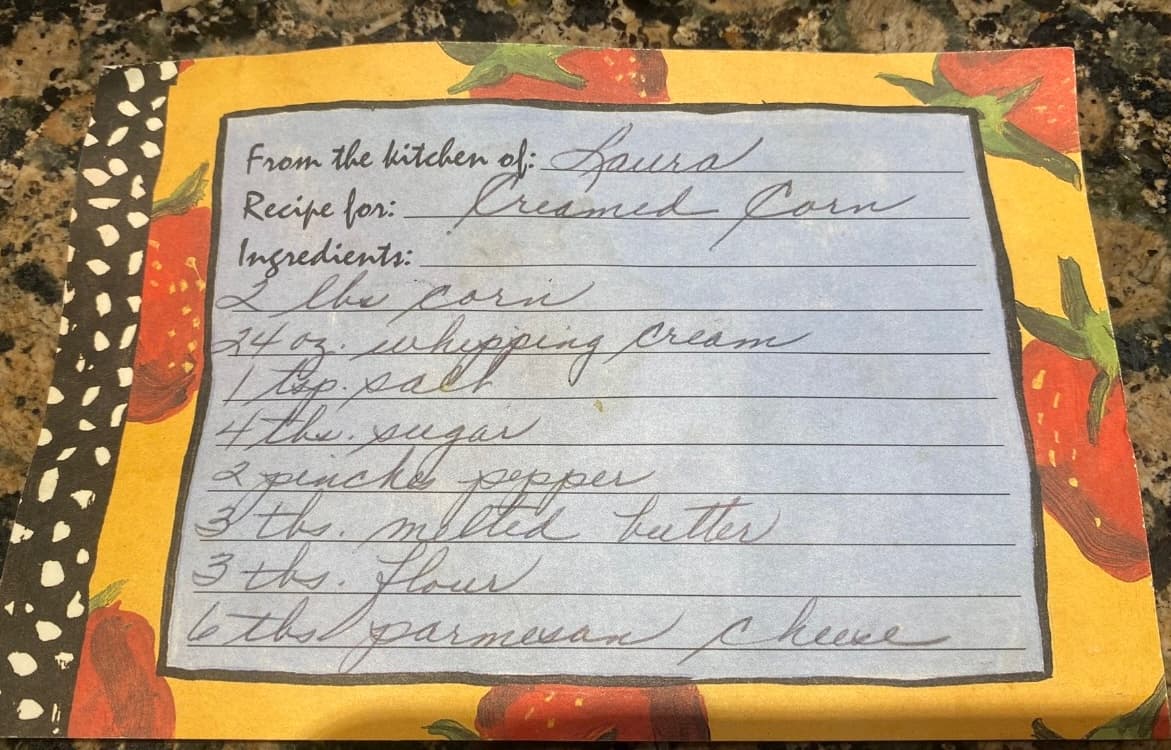 From the kitchen of: Laura
Recipe for: Creamed Corn
Ingredients:
2 lbs corn
24 oz. whipping cream
1 tsp. salt
4 tbs. sugar
2 pinches pepper
3 tbs. melted butter
3 tbs. flour
6 tbs parmesan cheese